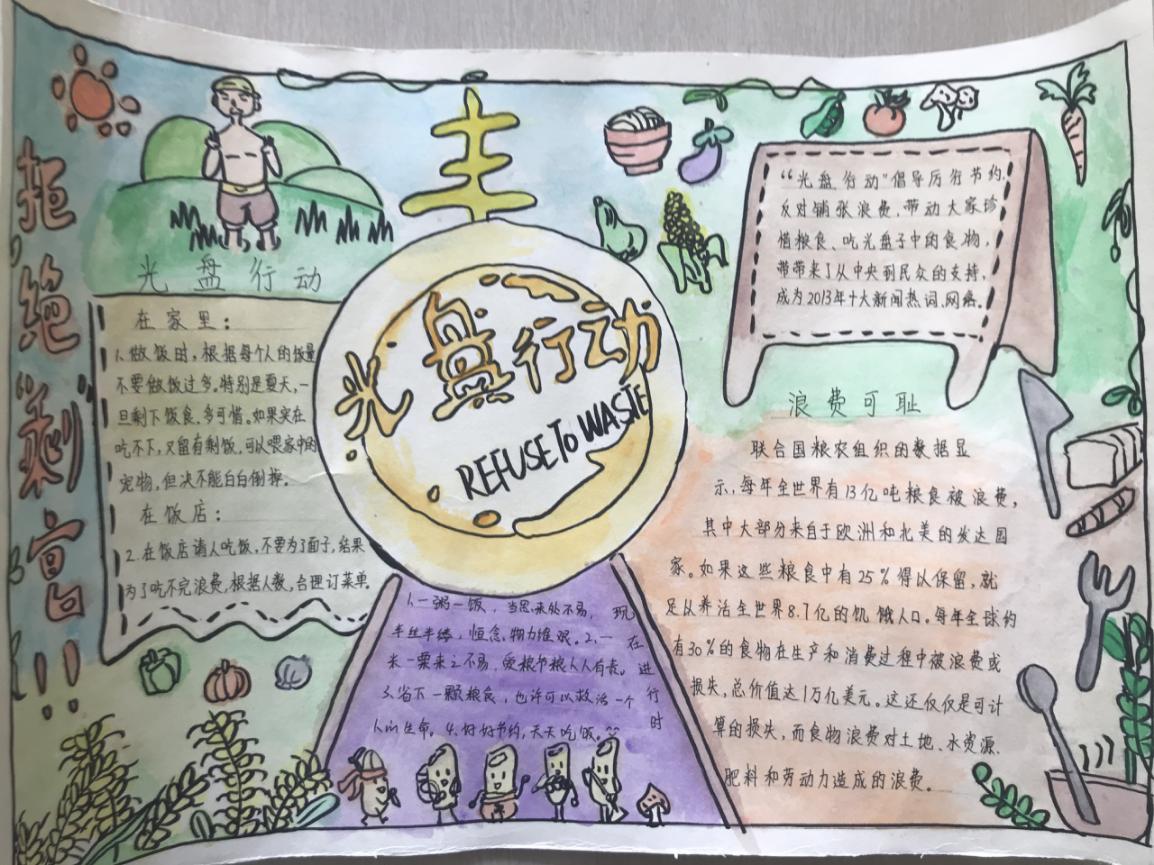 拒绝"剩"宴!!
光盘行动
在家里:
1.做饭时,根据每个人的饭量
不要做饭过多。特别是夏天,一
旦剩下饭食,多可惜。如果实在
吃不下,又留有剩饭,可以喂家中的
宠物,但决不能白白倒掉。
在饭店:
2.在饭店请人吃饭,不要为了面子,结果
为了吃不完浪费,根据人数,合理订菜单。
光盘行动
REFUSE To WASTE
1.一粥一饭,当思来处不易,
半丝半缕,恒念物力维艰。2.一
米一粟来之不易,爱粮节粮人人有责。
3.省下一颗粮食,也许可以救活一个
人的生命。4.好好节约,天天吃饭。
现在进行时
"光盘行动"倡导厉行节约,
反对铺张浪费,带动大家珍
惜粮食、吃光盘子中的食物,
带带来了从中央到民众的支持,
成为2013年十大新闻热词、网络。
浪费可耻
联合国粮农组织的数据显
示,每年全世界有13亿吨粮食被浪费,
其中大部分来自于欧洲和北美的发达国
家。如果这些粮食中有25%得以保留,就
足以养活全世界8.7亿的饥饿人口。每年全球约
有30%的食物在生产和消费过程中被浪费或
损失,总价值达1万亿美元。这还仅仅是可计
算的损失,而食物浪费对土地、水资源、
肥料和劳动力造成的浪费。